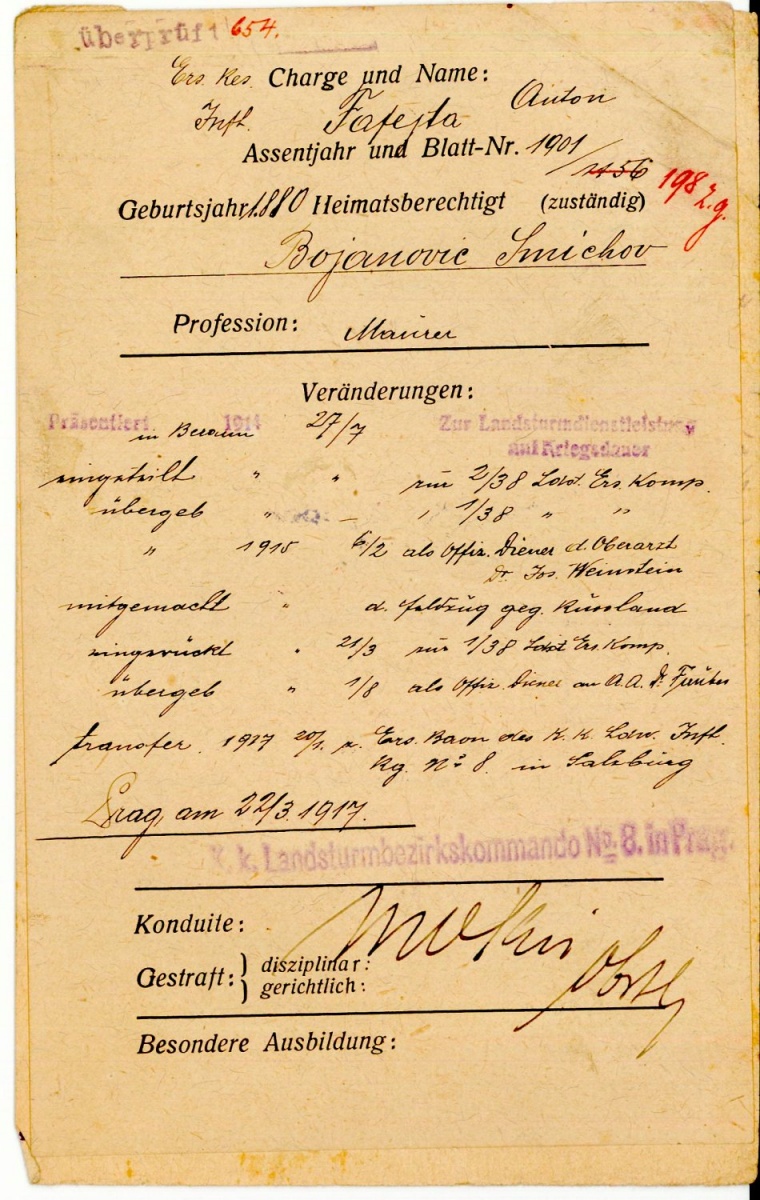 überprüft 654.
Ers. Res. Charge und Name:
Inft. Fafejta Anton
Assentjahr und Blatt-Nr. 1901/1156
198
Geburtsjahr 1880 Heimatsberechtigt (zuständig)
Bojanovic Smichov
Profession: Maurer
Veränderungen:
Präsentiert 1914 27/7 Zur Landsturmdienstleistung
in Beraun auf Kriegsdauer
eingeteilt " " zur 2/38 Ldst. Ers. Komp.
übergeb " — " 1/38 " "
" 1915 6/2 als Offiz. Diener d. Oberarzt
Dr. Jos. Weinstein
mitgemacht " d. Feldzug geg. Russland
eingerückt " 21/3 zur 1/38 Ldst Ers. Komp.
übergeb " 1/8 als Offiz. Diener an A. A. Dr.
transfer. 1917 20/1. z. Ers. Baon des K. K. Ldw. Inft.
Rg. No 8. in Salzburg
Prag, am 22/3. 1917.
K. k. Landsturmbezirkskommando No. 8. in Prag.
Konduite:
Gestraft: disziplinar:
gerichtlich:
Obstl
Besondere Ausbildung: